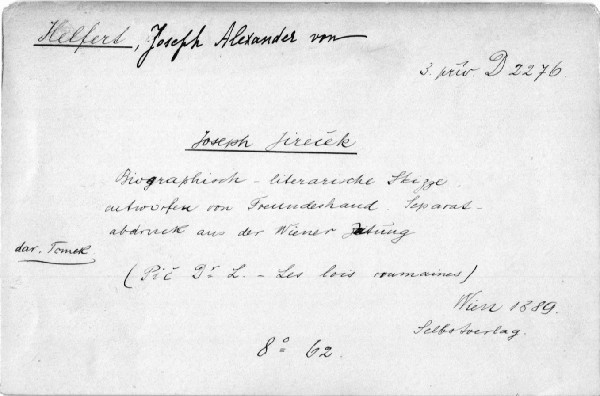 Helfert, Joseph Alexander von
3. přív D 2276
Joseph Jireček
Biographisch-literarische Skizze
entworfen von Freundeshand. Separat-
abdruck aus der Wiener Zeitung
dar. Tomek
(Píč Dr L. - Les lois roumaines)
Wien 1889.
Selbstverlag.
8° 62.